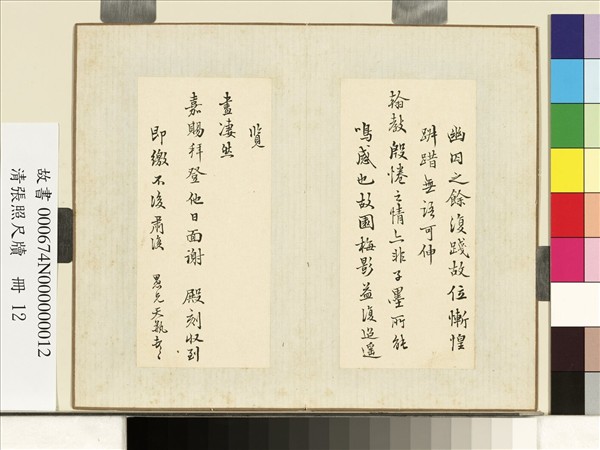 幽囚之餘復踐故位慚惶
踖無語可伸
翰教殷惓之情亦非子墨所能
鳴感也故園梅影益復迢遥
覽
凄然
嘉賜拜登他日面謝 殿刻收到
即繳不 肅 天瓶
故書 000674N000000012
清張照尺牘 冊 12